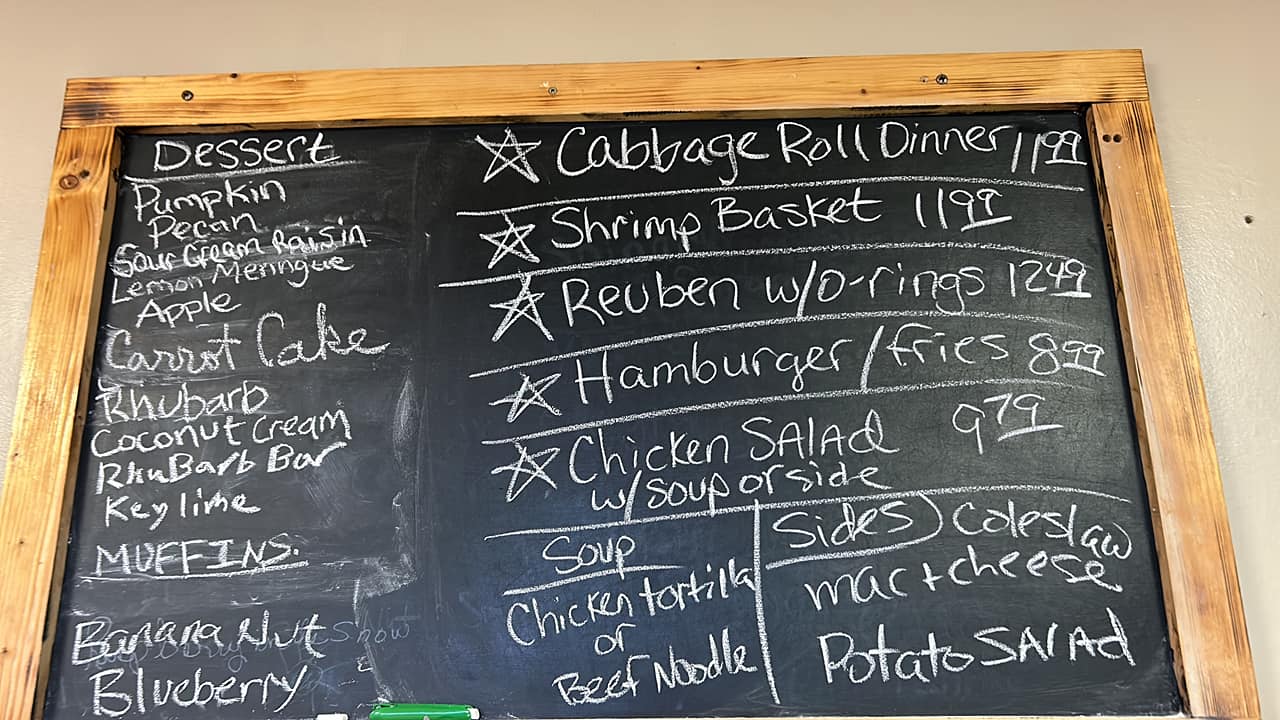 Dessert
Pumpkin
Pecan
Sour Cream Raisin
Lemon Meringue
Apple
Carrot Cake
Rhubarb
Coconut Cream
RhuBarb Bar
Key lime
MUFFINS.
Banana Nut
Blueberry
Cabbage Roll Dinner 11 99
Shrimp Basket 11 99
Reuben w/o-rings 12 49
Hamburger/fries 8 99
Chicken SALAD 9 79
w/soup or side
Soup
Chicken tortilla
or
Beef Noodle
Sides) Coleslaw
mac + cheese
Potato SALAd